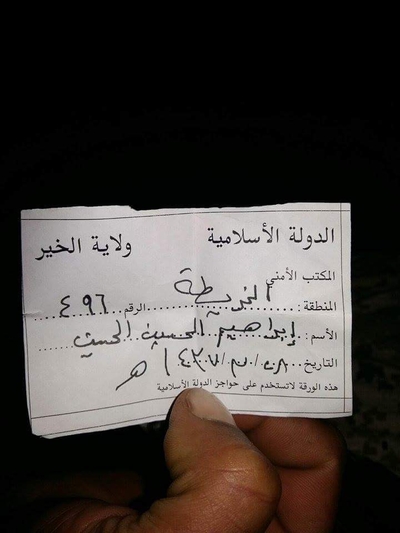 الدولة الأسلامية
ولاية الخير
المكتب الأمني
المنطقة : الخريطة الرقم ٤٩٦
الأسم : إبراهيم
التاريخ ١٤٣٧ هـ
هذه الورقة لاتستخدم على حواجز الدولة الأسلامية